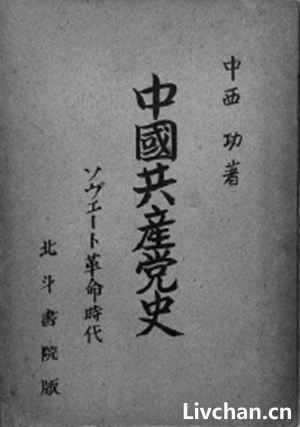 中西 功著
中國共産党史
ソヴエート革命時代
北斗書院版
Livchan.cn